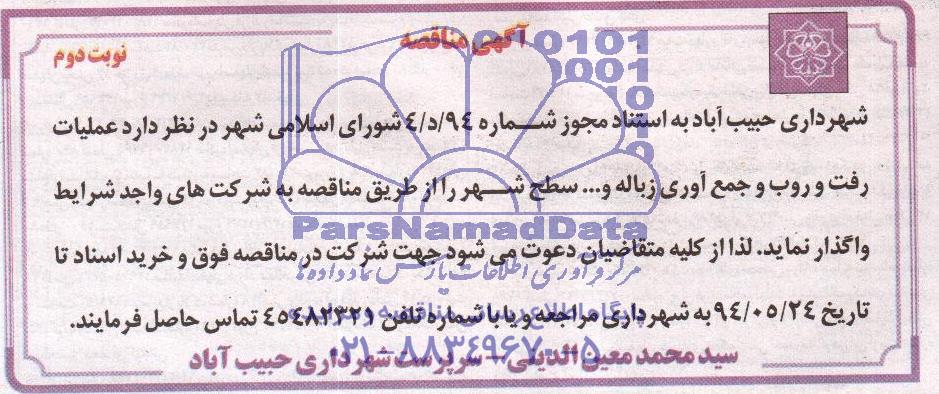 آگهی مناقصه
نوبت دوم
شهرداری حبیب آباد به استناد مجوز شماره ۹۴/د/۴ شورای اسلامی شهر در نظر دارد عملیات
رفت و روب و جمع آوری زباله و... سطح شهر را از طریق مناقصه به شرکت های واجد شرایط
واگذار نماید. لذا از کلیه متقاضیان دعوت می شود جهت شرکت در مناقصه فوق و خرید اسناد تا
تاریخ ۹۴/۰۵/۲۴ به شهرداری مراجعه و یا با شماره تلفن ۴۵۴۸۲۳۲۱ تماس حاصل فرمایند.
سید محمد معین الدینی - سرپرست شهرداری حبیب آباد
ParsNamadData
مرکز فرآوری اطلاعات پارس نماد داده ها
۰۲۱-۸۸۳۴۹۶۷۰-۵